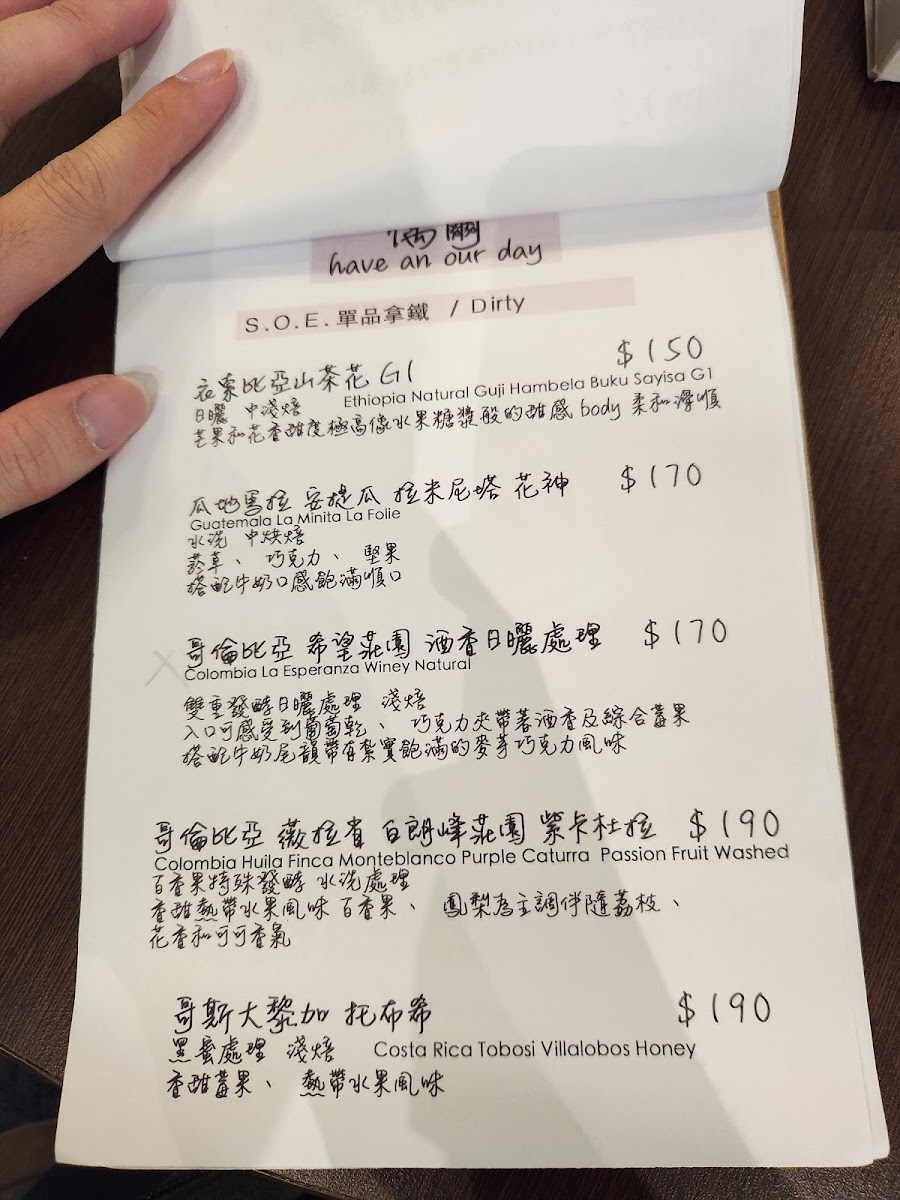 偶爾
have an our day
S.O.E.單品拿鐵 / Dirty
衣索比亞山茶花 G1 $150
Ethiopia Natural Guji Hambela Buku Sayisa G1
日曬 中淺焙
芒果和花香甜度極高像水果糖漿般的甜感 body 柔和滑順
瓜地馬拉 安提瓜 拉米尼塔 花神 $170
Guatemala La Minita La Folie
水洗 中烘焙
菸草、巧克力、堅果
搭配牛奶口感飽滿順口
哥倫比亞 希望莊園 酒香日曬處理 $170
Colombia La Esperanza Winey Natural
雙重發酵日曬處理 淺焙
入口可感受到葡萄乾、巧克力夾帶著酒香及綜合莓果
搭配牛奶尾韻帶有紮實飽滿的麥芽巧克力風味
哥倫比亞 薇拉省 白朗峰莊園 紫卡杜拉 $190
Colombia Huila Finca Monteblanco Purple Caturra Passion Fruit Washed
百香果特殊發酵 水洗處理
香甜熱帶水果風味 百香果、鳳梨為主調伴隨荔枝、
花香和可可香氣
哥斯大黎加 托布希 $190
黑蜜處理 淺焙 Costa Rica Tobosi Villalobos Honey
香甜莓果、熱帶水果風味